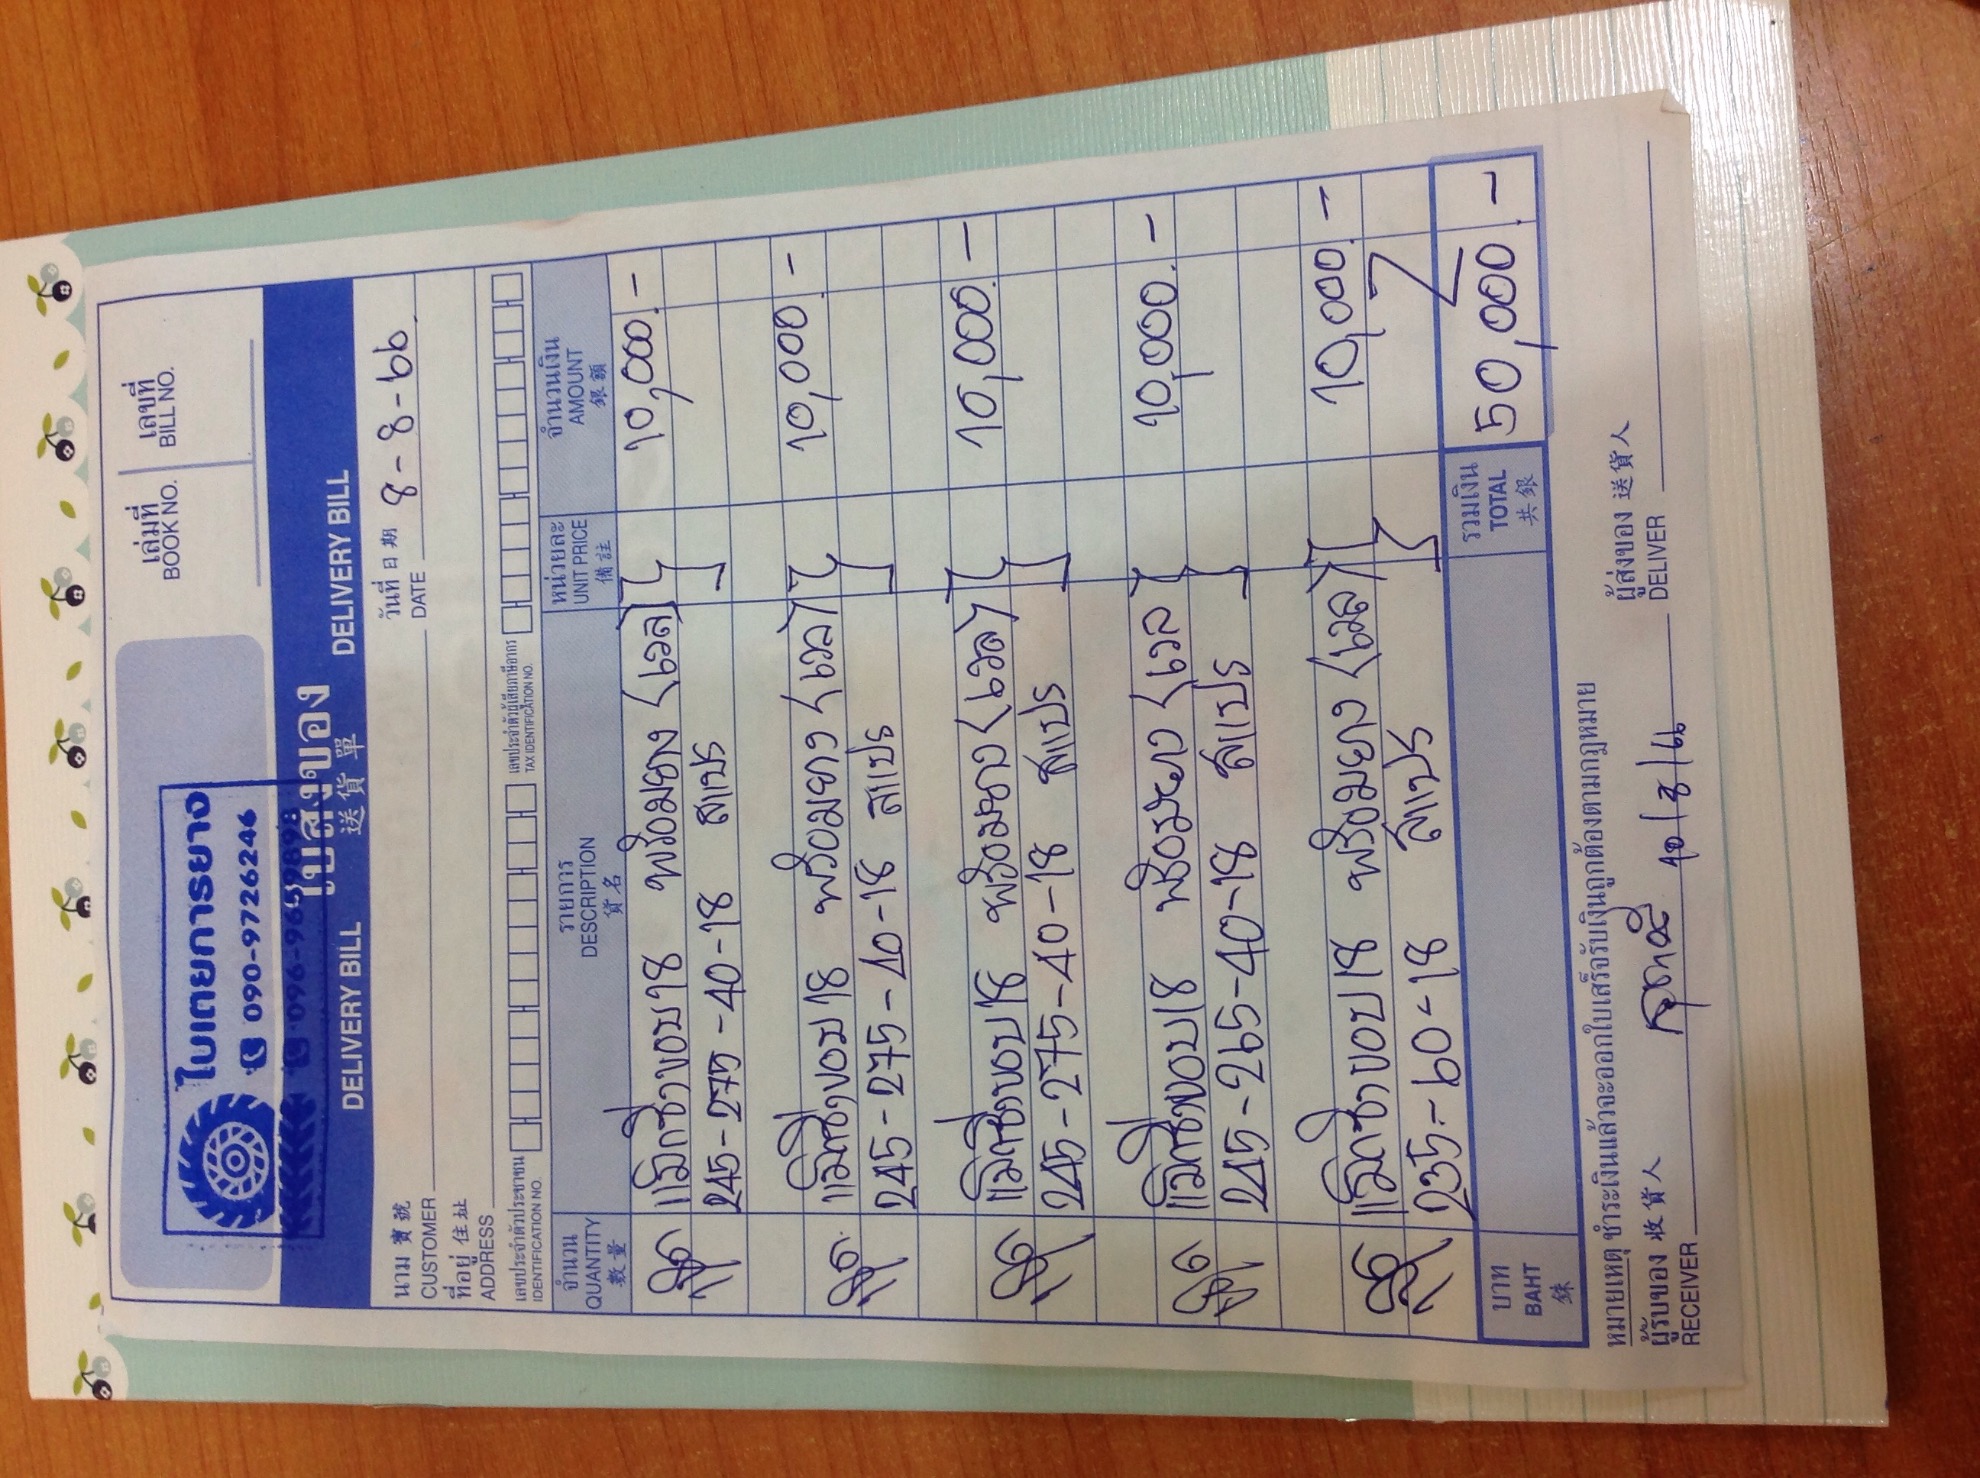 เล่มที่ เลขที่
BOOK NO. BILL NO.
ใบเตยการยาง
090-9726246
096-9659898
ใบส่งของ
DELIVERY BILL 送貨單 DELIVERY BILL
นาม 寶號 วันที่ 日期 8-8-66
CUSTOMER DATE
ที่อยู่ 住址
ADDRESS
เลขประจำตัวประชาชน เลขประจำตัวผู้เสียภาษีอากร
IDENTIFICATION NO. TAX IDENTIFICATION NO.
จำนวน รายการ หน่วยละ จำนวนเงิน
QUANTITY DESCRIPTION UNIT PRICE AMOUNT
數量 貨名 備註 銀額
แม็กซิ่งขอบ 18 พร้อมยาง (เวล) 10,000.-
245-275-40-18 สเปร
แม็กซิ่งขอบ 18 พร้อมยาง (เวล) 10,000.-
245-275-40-18 สเปร
แม็กซิ่งขอบ 18 พร้อมยาง (เวล) 10,000.-
245-275-40-18 สเปร
แม็กซิ่งขอบ 18 พร้อมยาง (เวล) 10,000.-
245-265-40-18 สเปร
แม็กซิ่งขอบ 18 พร้อมยาง (เวล) 10,000.-
235-60-18 สเปร
บาท รวมเงิน 50,000.-
BAHT TOTAL
銖 共銀
หมายเหตุ ชำระเงินแล้วจะออกใบเสร็จรับเงินถูกต้องตามกฎหมาย
ผู้รับของ 收貨人 ผู้ส่งของ 送貨人
RECEIVER DELIVER